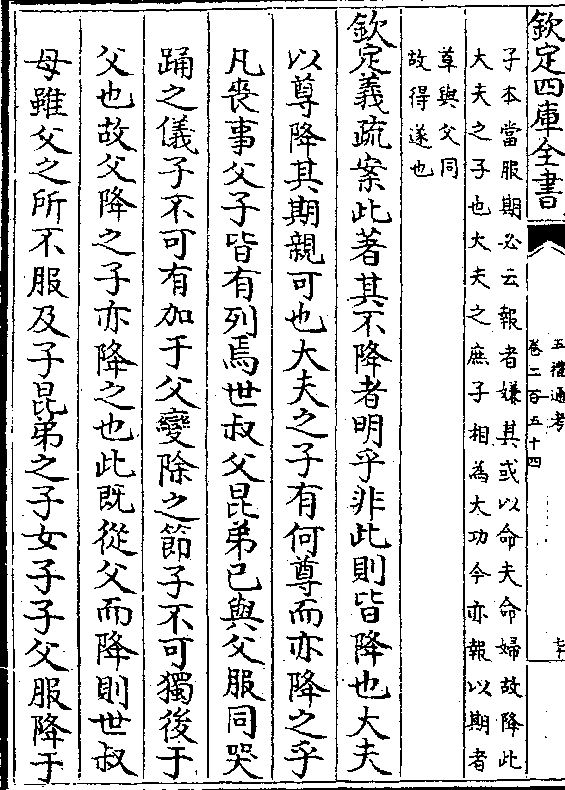 欽定四庫全書
五禮通考
卷二百五十四
子本當服期必云報者嫌其或以命夫命婦故降此
大夫之子也大夫之庶子相為大功今亦報以期者
草與父同
故得遂也
欽定義疏案此著其不降者明乎非此則皆降也大夫
以尊降其期親可也大夫之子有何尊而亦降之乎
凡喪事父子皆有列焉世叔父昆弟已與父服同哭
踊之儀子不可有加于父變除之節子不可獨後于
父也故父降之子亦降之也此既從父而降則世叔
母雖父之所不服及子昆弟之子女子子父服降于